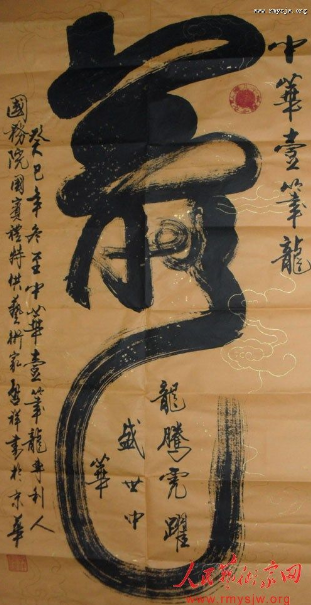 www.rmysjw.org
中華壹筆龍
龍
龍騰虎躍
盛世中
華
癸巳年冬至中華壹筆龍專利人
國務院國賓禮特供藝術家聖祥書於京華
人民艺术家网
www.rmysjw.org